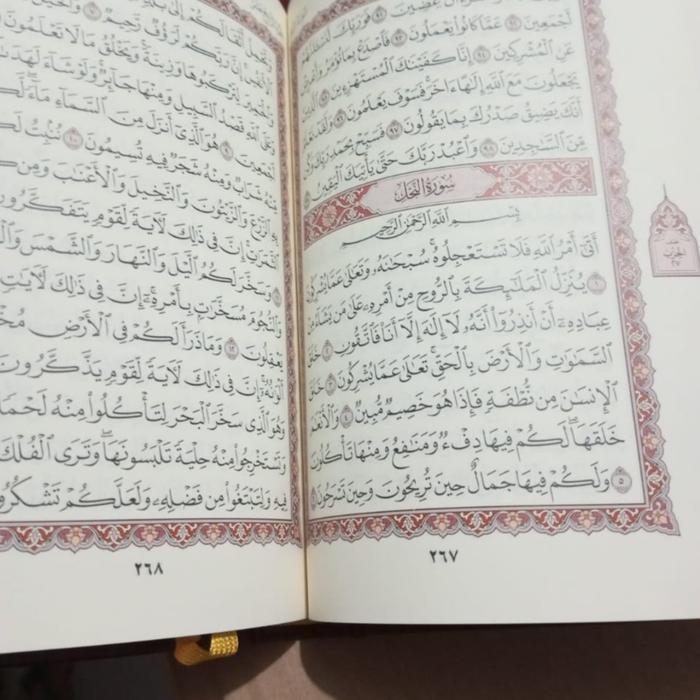 عِضِينَ ٩١ فَوَرَبِّكَ لَنَسْـَٔلَنَّهُمْ
أَجْمَعِينَ ٩٢ عَمَّا كَانُوا۟ يَعْمَلُونَ ٩٣ فَٱصْدَعْ بِمَا تُؤْمَرُ وَأَعْرِضْ
عَنِ ٱلْمُشْرِكِينَ ٩٤ إِنَّا كَفَيْنَٰكَ ٱلْمُسْتَهْزِءِينَ ٩٥ ٱلَّذِينَ
يَجْعَلُونَ مَعَ ٱللَّهِ إِلَٰهًا ءَاخَرَ ۚ فَسَوْفَ يَعْلَمُونَ ٩٦ وَلَقَدْ نَعْلَمُ
أَنَّكَ يَضِيقُ صَدْرُكَ بِمَا يَقُولُونَ ٩٧ فَسَبِّحْ بِحَمْدِ رَبِّكَ وَكُن
مِّنَ ٱلسَّٰجِدِينَ ٩٨ وَٱعْبُدْ رَبَّكَ حَتَّىٰ يَأْتِيَكَ ٱلْيَقِينُ ٩٩
سُورَةُ النَّحْلِ
بِسْمِ ٱللَّهِ ٱلرَّحْمَٰنِ ٱلرَّحِيمِ
أَتَىٰٓ أَمْرُ ٱللَّهِ فَلَا تَسْتَعْجِلُوهُ ۚ سُبْحَٰنَهُۥ وَتَعَٰلَىٰ عَمَّا يُشْرِكُونَ
١ يُنَزِّلُ ٱلْمَلَٰٓئِكَةَ بِٱلرُّوحِ مِنْ أَمْرِهِۦ عَلَىٰ مَن يَشَآءُ مِنْ
عِبَادِهِۦٓ أَنْ أَنذِرُوٓا۟ أَنَّهُۥ لَآ إِلَٰهَ إِلَّآ أَنَا۠ فَٱتَّقُونِ ٢ خَلَقَ
ٱلسَّمَٰوَٰتِ وَٱلْأَرْضَ بِٱلْحَقِّ ۚ تَعَٰلَىٰ عَمَّا يُشْرِكُونَ ٣ خَلَقَ
ٱلْإِنسَٰنَ مِن نُّطْفَةٍ فَإِذَا هُوَ خَصِيمٌ مُّبِينٌ ٤ وَٱلْأَنْعَٰمَ
خَلَقَهَا ۗ لَكُمْ فِيهَا دِفْءٌ وَمَنَٰفِعُ وَمِنْهَا تَأْكُلُونَ
٥ وَلَكُمْ فِيهَا جَمَالٌ حِينَ تُرِيحُونَ وَحِينَ تَسْرَحُونَ ٦
٢٦٧
الحزب
٢٧
وَتَحْمِلُ أَثْقَالَكُمْ إِلَىٰ بَلَدٍ
إِنَّ رَبَّكُمْ لَرَءُوفٌ رَّحِيمٌ ٧ وَٱلْخَيْلَ
وَٱلْحَمِيرَ لِتَرْكَبُوهَا وَزِينَةً ۚ وَيَخْلُقُ مَا لَا تَعْلَمُونَ
وَعَلَى ٱللَّهِ قَصْدُ ٱلسَّبِيلِ وَمِنْهَا جَآئِرٌ ۚ وَلَوْ شَآءَ لَهَدَىٰكُمْ
أَجْمَعِينَ ٩ هُوَ ٱلَّذِىٓ أَنزَلَ مِنَ ٱلسَّمَآءِ مَآءً ۖ لَّكُم
مِّنْهُ شَرَابٌ وَمِنْهُ شَجَرٌ فِيهِ تُسِيمُونَ ١٠ يُنۢبِتُ لَكُم
بِهِ ٱلزَّرْعَ وَٱلزَّيْتُونَ وَٱلنَّخِيلَ وَٱلْأَعْنَٰبَ وَمِن
ٱلثَّمَرَٰتِ ۗ إِنَّ فِى ذَٰلِكَ لَءَايَةً لِّقَوْمٍ يَتَفَكَّرُونَ
١١ وَسَخَّرَ لَكُمُ ٱلَّيْلَ وَٱلنَّهَارَ وَٱلشَّمْسَ
وَٱلنُّجُومُ مُسَخَّرَٰتٌۢ بِأَمْرِهِۦٓ ۗ إِنَّ فِى ذَٰلِكَ لَءَايَٰتٍ
يَعْقِلُونَ ١٢ وَمَا ذَرَأَ لَكُمْ فِى ٱلْأَرْضِ
أَلْوَٰنُهُۥٓ ۗ إِنَّ فِى ذَٰلِكَ لَءَايَةً لِّقَوْمٍ يَذَّكَّرُونَ
وَهُوَ ٱلَّذِى سَخَّرَ ٱلْبَحْرَ لِتَأْكُلُوا۟ مِنْهُ لَحْمًا
وَتَسْتَخْرِجُوا۟ مِنْهُ حِلْيَةً تَلْبَسُونَهَا وَتَرَى ٱلْفُلْكَ
فِيهِ وَلِتَبْتَغُوا۟ مِن فَضْلِهِۦ وَلَعَلَّكُمْ تَشْكُرُونَ
٢٦٨